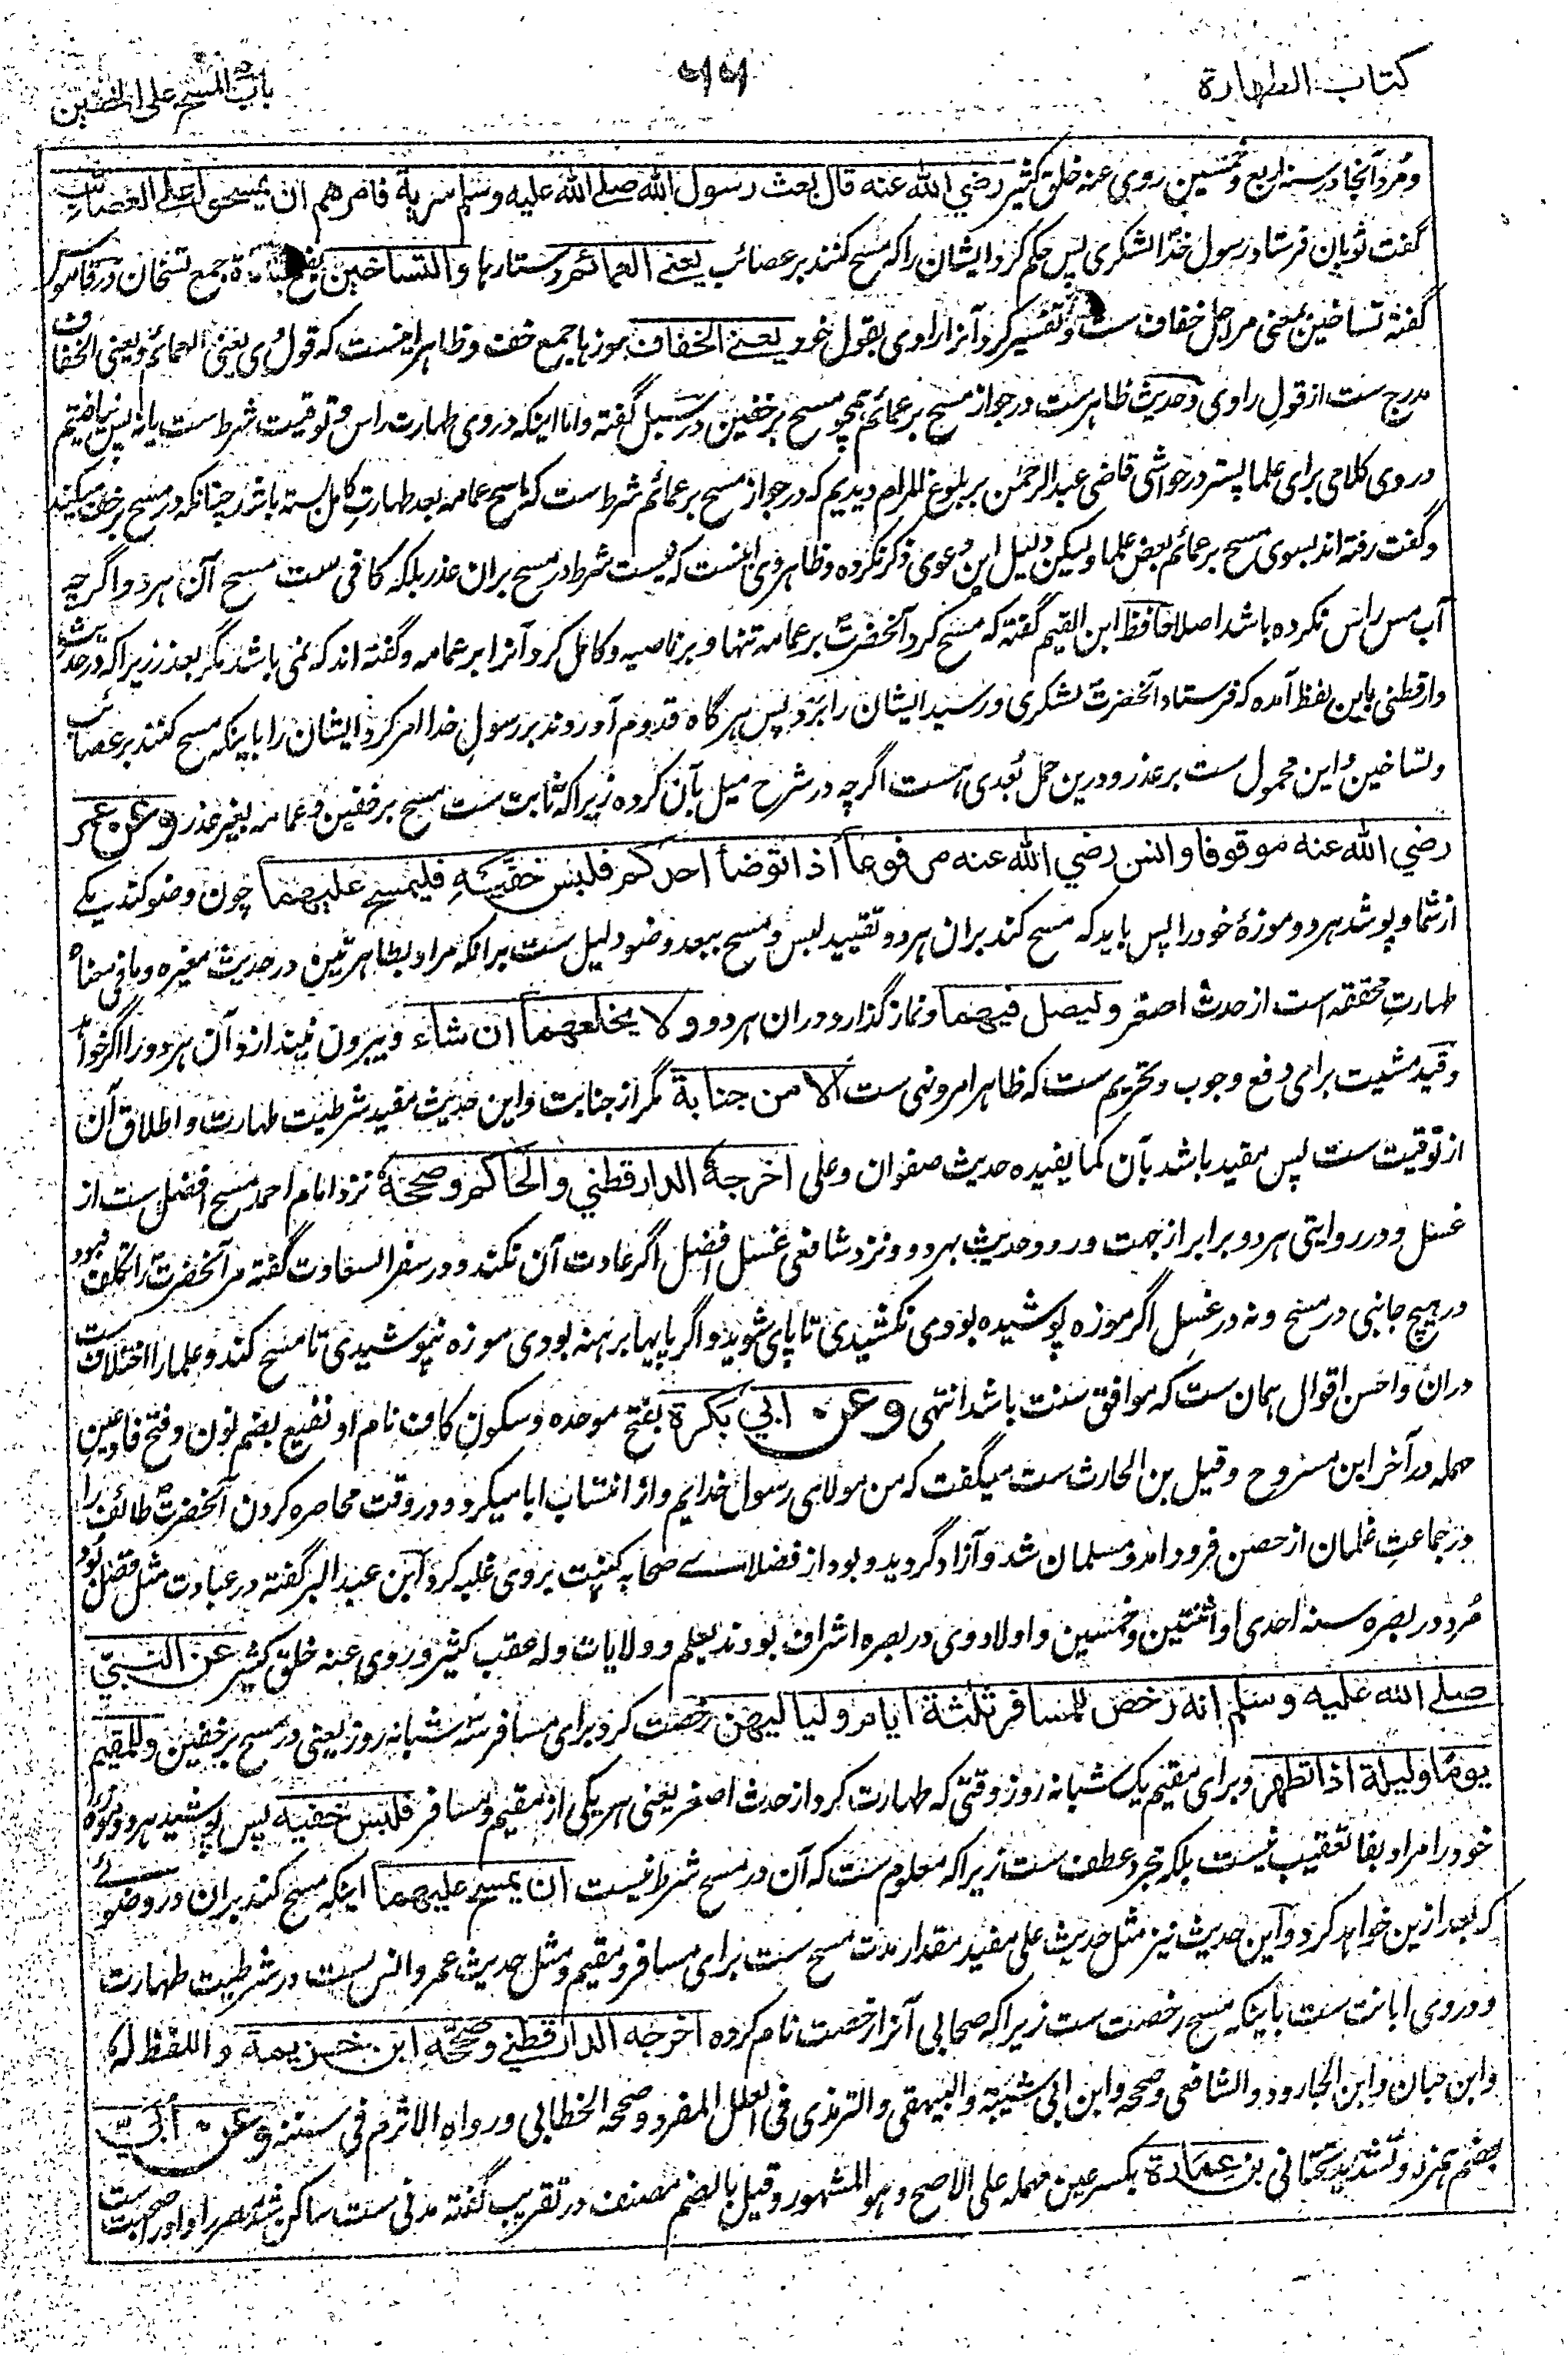 کتاب الطهارة
باب المسح علی الخفین
ومُرد آنجا در سنه اربع وخمسین روی عنه خلق کثیر رضي الله عنه قال بعث رسول الله صلے الله علیه وسلم سریة فامرهم ان یمسحوا علی العصائب
گفت ثوبان فرستاد رسول خدا لشکری پس حکم کرد ایشان را که مسح کنند بر عصائب یعنے العمائم دستارها والتساخین بفتح جمع تسخان در قاموس
گفته تساخین بمعنی مراجل خفاف ست و تفسیر کرد آنرا راوی بقول خود یعنے الخفاف موزها جمع خف و ظاهر اینست که قول وی یعنی العمائم و یعنی الخفاف
مدرج ست از قول راوی و حدیث ظاهرست در جواز مسح بر عمائم همچو مسح بر خفین در سبل گفته و اما اینکه در وی طهارت راس و توقیت شرط ست یا نه پس نیافتیم
در وی کلامی برای علما پستر در حواشی قاضی عبدالرحمٰن بر بلوغ المرام دیدیم که در جواز مسح بر عمائم شرط ست که ماسح عمامه بعد طهارتِ کامل بسته باشد چنانکه در مسح بر خف میکند
وگفت رفته اند بسوی مسح بر عمائم بعض علما ولیکن دلیل این دعوی ذکر نکرده و ظاهر وی اینست که نیست شرط در مسح بران عذر بلکه کافی ست مسح آن هر دو اگرچه
آب مس راس نکرده باشد اصلا حافظ ابن القیم گفته که مسح کرد آنحضرت بر عمامه تنها و بر ناصیه و کامل کرد آنرا بر عمامه و گفته اند که نمی باشد مگر بعذر زیرا که در حدیث
دارقطنی باین لفظ آمده که فرستاد آنحضرت لشکری و رسید ایشان را برد پس هرگاه قدوم آوردند بر رسولِ خدا امر کرد ایشان را باینکه مسح کنند بر عصائب
وتساخین و این محمول ست بر عذر و درین حمل بُعدی ست اگرچه در شرح میل بآن کرده زیرا که ثابت ست مسح بر خفین و عمامه بغیر عذر وعن عمر
رضي الله عنه موقوفا وانس رضي الله عنه مرفوعا اذا توضأ احدکم فلبس خفیه فلیمسح علیهما چون وضو کند یکے
از شما و پوشد هر دو موزهٔ خود را پس باید که مسح کند بران هر دو و تقیید لبس و مسح ببعد وضو دلیل ست برانکه مراد بطاهرتین در حدیث مغیره و ما فی معناه
طهارتِ محققه است از حدث اصغر ولیصل فیهما و نماز گذارد دران هر دو ولا یخلعهما ان شاء و بیرون نیندازد آن هر دو را اگر خواهد
وقید مشیت برای دفع وجوب و تحریم ست که ظاهر امر و نهی ست الا من جنابة مگر از جنابت و این حدیث مفید شرطیت طهارت و اطلاق آن
از توقیت ست پس مقید باشد بآن کما یفیده حدیث صفوان وعلی اخرجه الدارقطني والحاکم وصححه نزد امام احمد مسح افضل ست از
غسل و در روایتی هر دو برابر از جهت ورود حدیث بهر دو و نزد شافعی غسل افضل اگر عادت آن نکند و در سفر السعادت گفته مر آنحضرت را تکلف نبود
در هیچ جانبی در مسح و نه در غسل اگر موزه پوشیده بودی نکشیدی تا پای شوید و اگر پایها برهنه بودی موزه نپوشیدی تا مسح کند و علما را اختلاف ست
دران و احسن اقوال همان ست که موافق سنت باشد انتهی وعن ابي بکرة بفتح موحده و سکون کاف نام او نفیع بضم نون و فتح فا و عین
مهمله در آخر ابن مسروح وقیل بن الحارث ست میگفت که من مولای رسول خدایم و از انتساب ابا میکرد و در وقت محاصره کردن آنحضرت طائف را
در جماعتِ غلمان از حصن فرود آمد و مسلمان شد و آزاد گردید و بود از فضلاے صحابه کنیت بر وی غلبه کرد ابن عبدالبر گفته در عبادت مثل فضل بود
مُرد در بصره سنه احدی او اثنتین وخمسین و اولاد وی در بصره اشراف بودند بعلم و ولایات وله عقب کثیر و روی عنه خلق کثیر عن النبي
صلے الله علیه وسلم انه رخص للمسافر ثلثة ایام ولیالیهن رخصت کرد برای مسافر سه شبانه روز یعنی در مسح بر خفین وللمقیم
یومًا ولیلة اذا تطهر و برای مقیم یک شبانه روز وقتی که طهارت کرد از حدث اصغر یعنی هر یکی از مقیم و مسافر فلبس خفیه پس پوشید هر دو موزه
خود را مراد بفا تعقیب نیست بلکه مجرد عطف ست زیرا که معلوم ست که آن در مسح شرط نیست ان یمسح علیهما اینکه مسح کند بران در وضوئے
که بعد ازین خواهد کرد و این حدیث نیز مثل حدیث علی مفید مقدار مدت مسح ست برای مسافر و مقیم و مثل حدیث عمر و انس ست در شرطیت طهارت
و در وی ابانت ست باینکه مسح رخصت ست زیرا که صحابی آنرا رخصت نام کرده اخرجه الدارقطني وصححه ابن خزیمة واللفظ له
وابن حبان وابن الجارود والشافعی وصححه وابن ابی شیبة والبیهقی والترمذی فی العلل المفرد وصححه الخطابی ورواه الاثرم فی سننه وعن أبي
بضم همزه وتشدید تحتانی بن عمارة بکسر عین مهمله علی الاصح وهو المشهور وقیل بالضم مصنف در تقریب گفته مدنی ست ساکن شد مصر را و او را صحبت ست